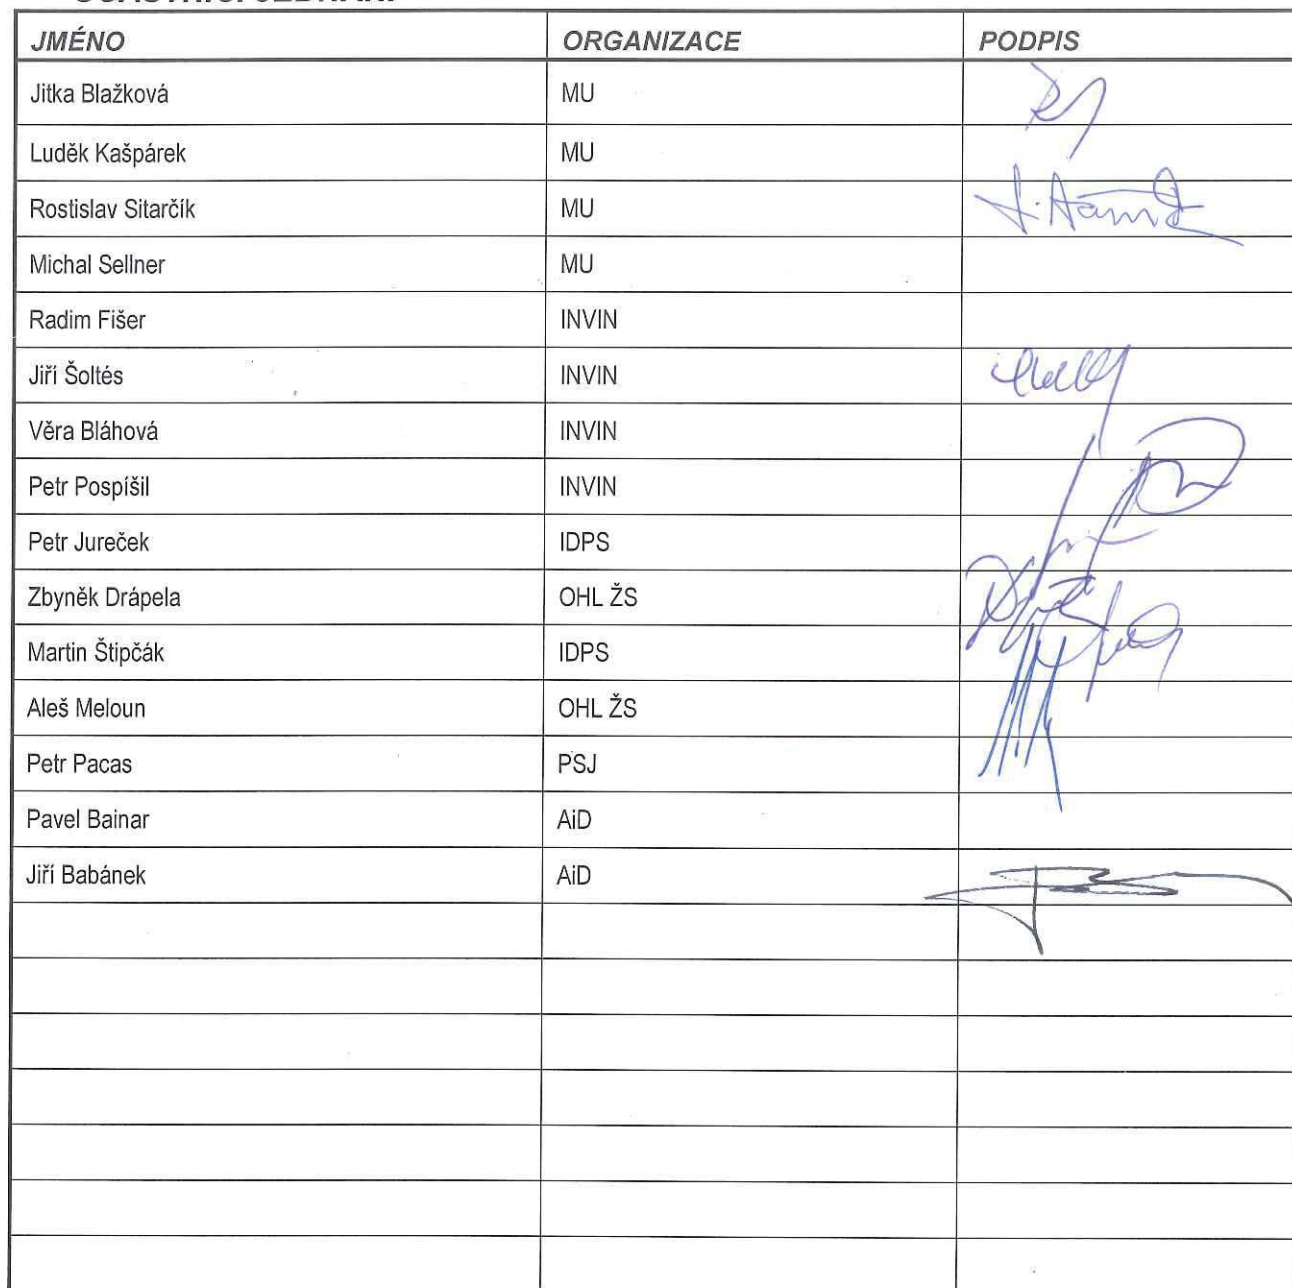 JMÉNO ORGANIZACE PODPIS
Jitka Blažková MU
Luděk Kašpárek MU
Rostislav Sitarčík MU
Michal Sellner MU
Radim Fišer INVIN
Jiří Šoltés INVIN
Věra Bláhová INVIN
Petr Pospíšil INVIN
Petr Jureček IDPS
Zbyněk Drápela OHL ŽS
Martin Štipčák IDPS
Aleš Meloun OHL ŽS
Petr Pacas PSJ
Pavel Bainar AiD
Jiří Babánek AiD